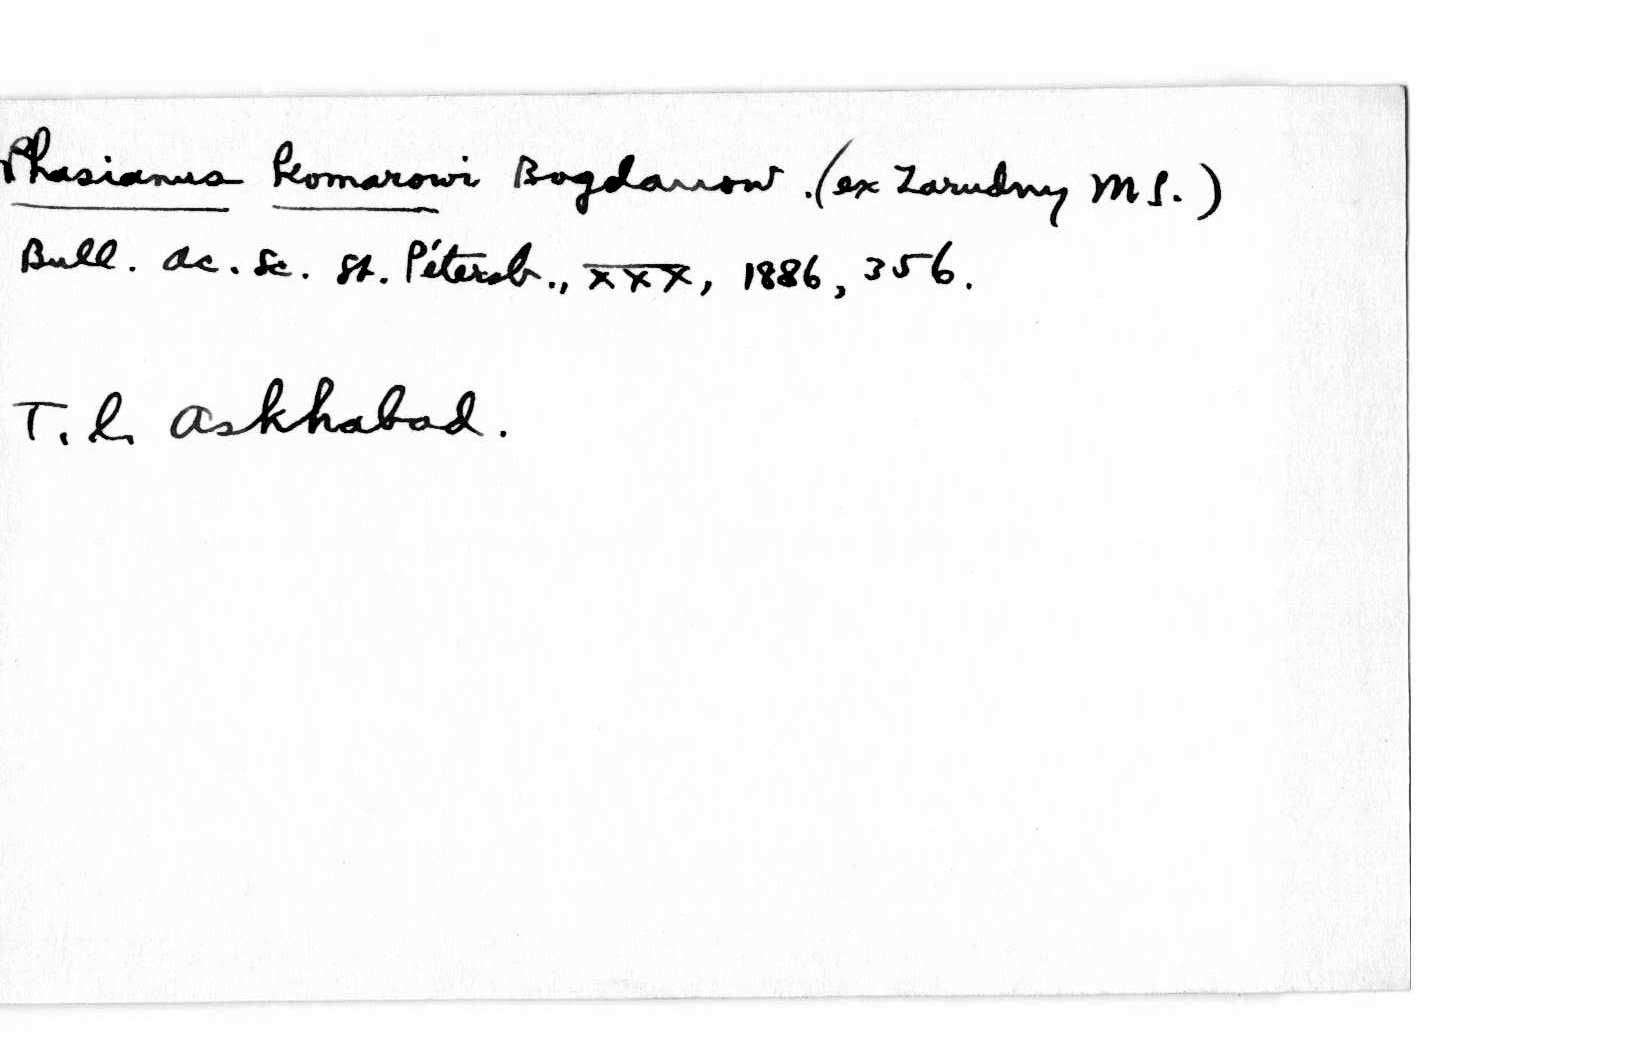 Phasianus komarowi Bogdanow. (ex Zarudny MS.)
Bull. Ac. Sc. St. Pétersb., XXX, 1886, 356.
T. l. Askhabad.